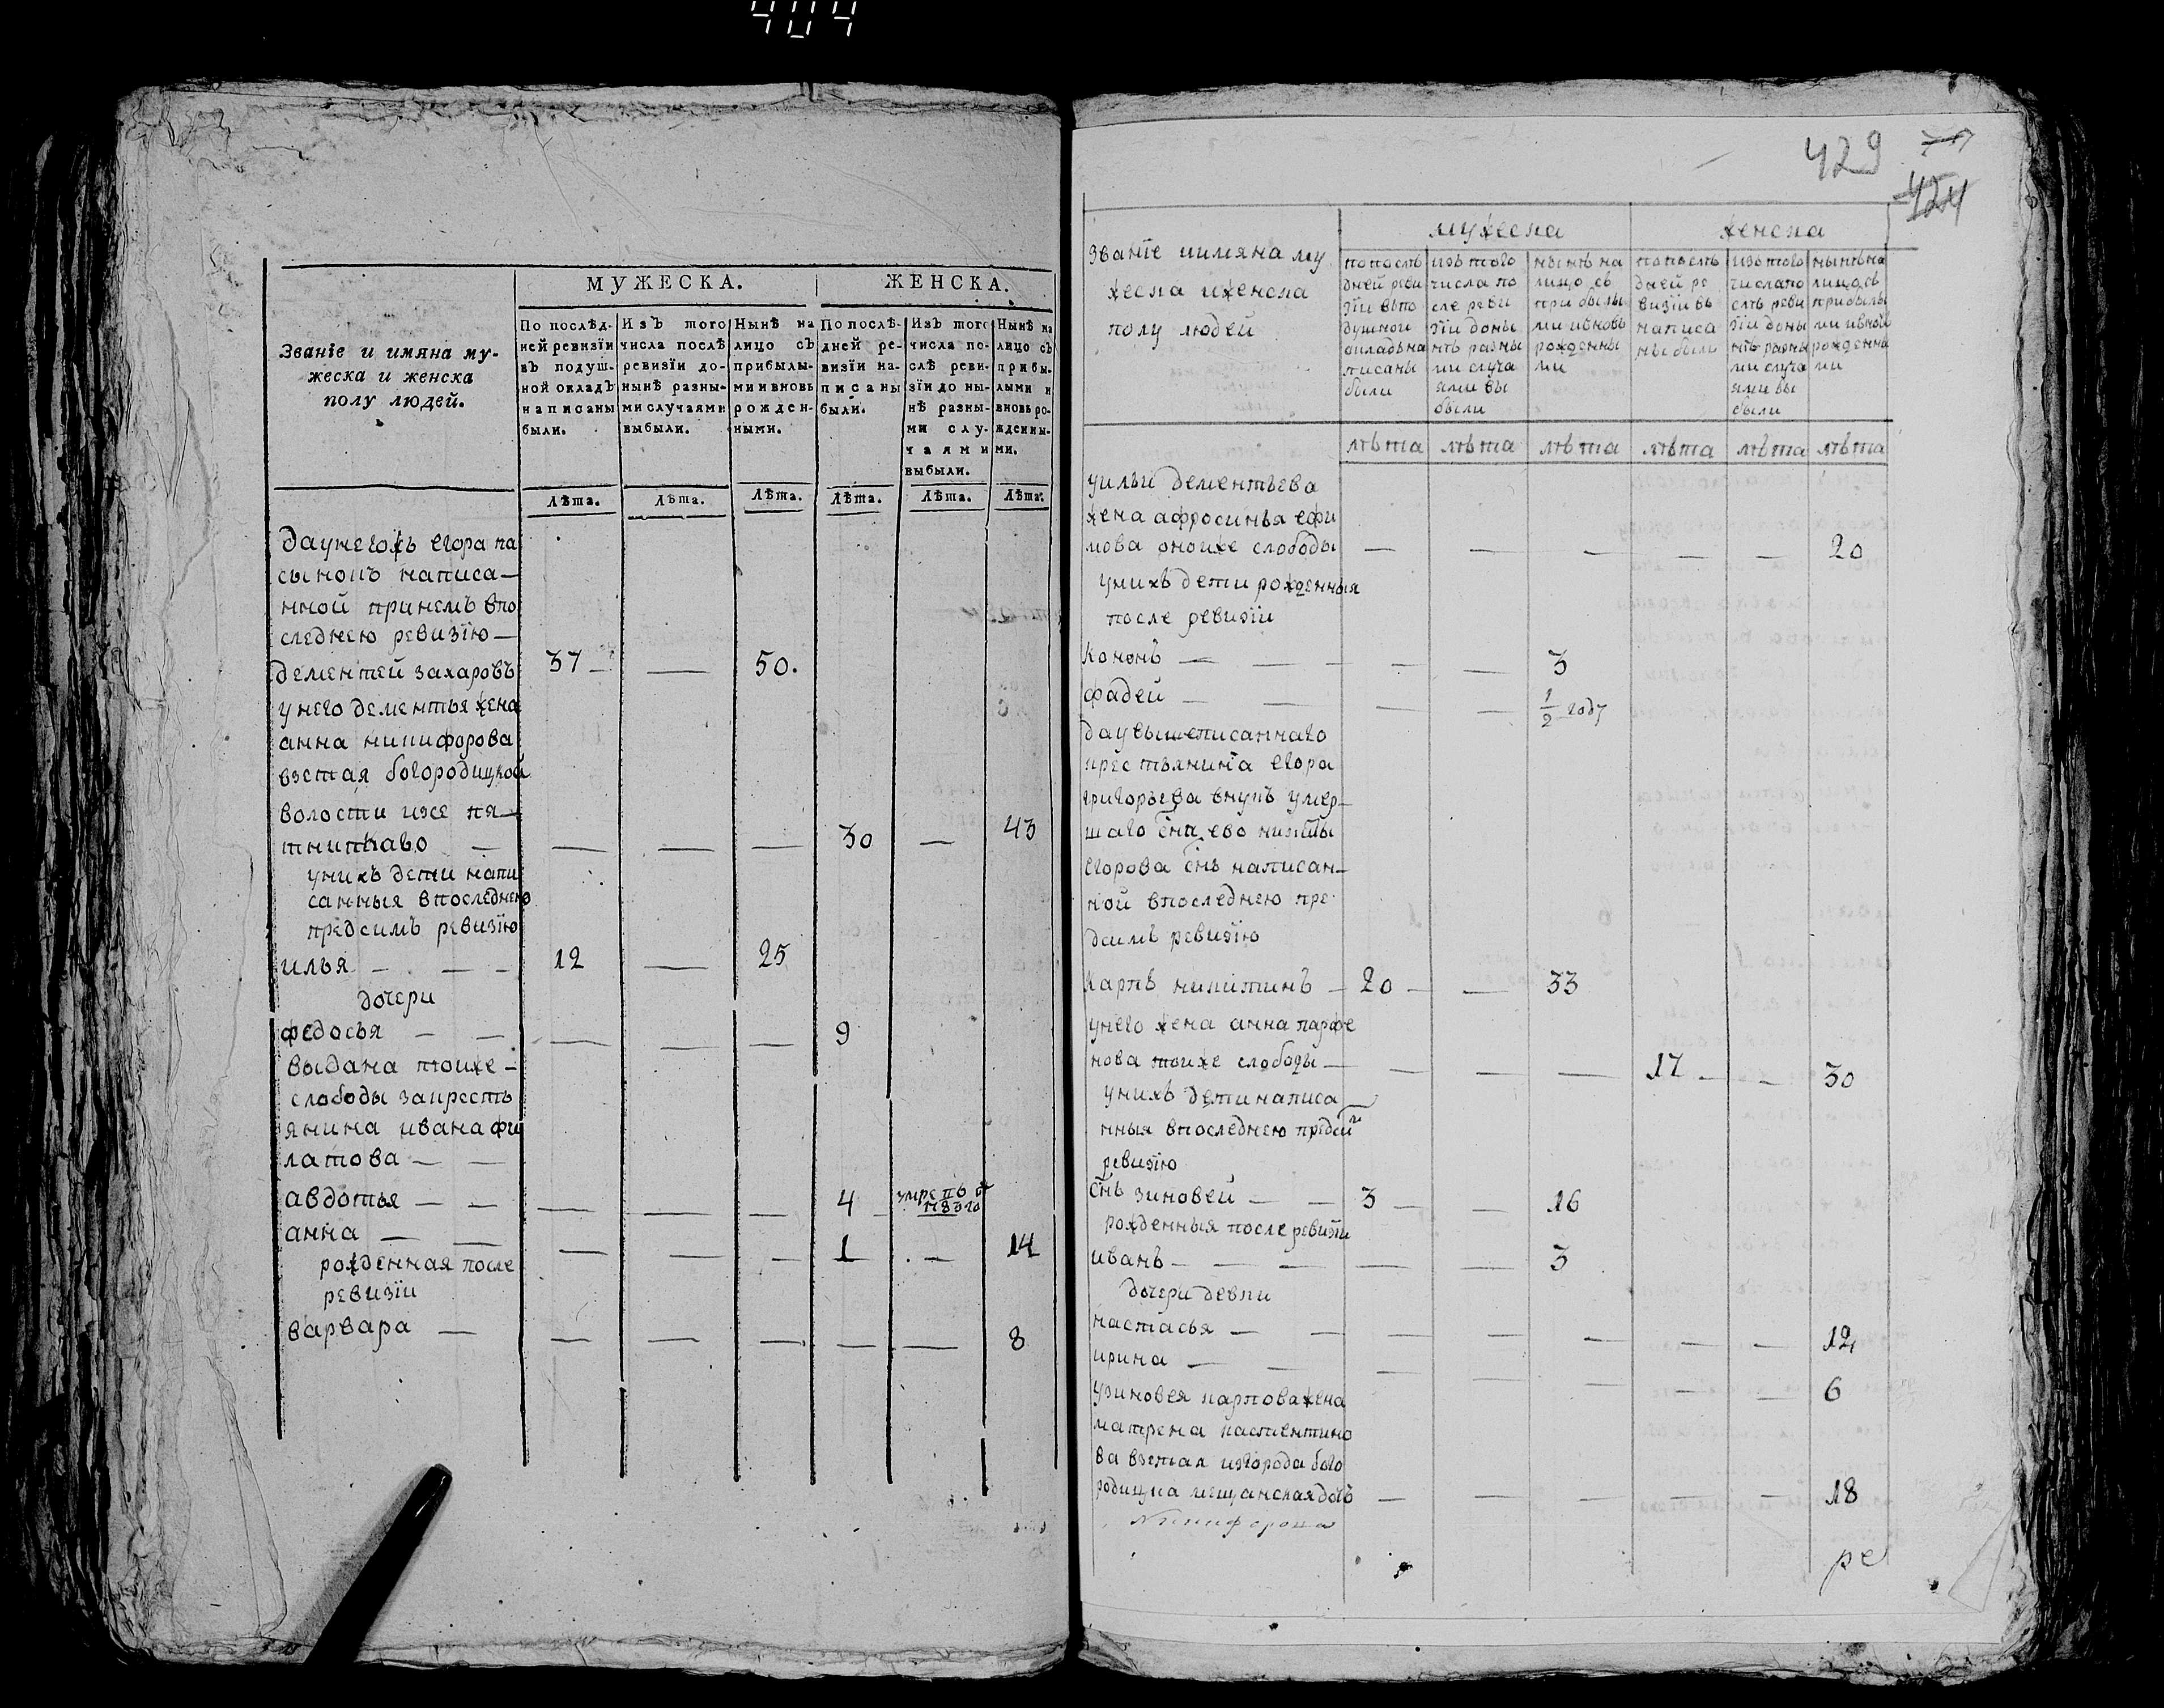 404
МУЖЕСКА. ЖЕНСКА.
Званіе и имяна му-
жеска и женска
полу людей.
По послѣд-
ней ревизїи
въ подуш-
ной окладъ
написаны
были.
Изъ того
числа послѣ
ревизїи до-
нынѣ разны-
ми случаями
выбыли.
Нынѣ на
лицо съ
прибылы-
ми и вновь
рожден-
ными.
По послѣ-
дней ре-
визїи на-
писаны
были.
Изъ того
числа по-
слѣ реви-
зїи до ны-
нѣ разны-
ми слу-
чаями
выбыли.
Нынѣ на
лицо съ
прибы-
лыми и
вновь ро-
жденны-
ми.
Лѣта. Лѣта. Лѣта. Лѣта. Лѣта. Лѣта.
да унегожъ егора па
сынокъ написа—
нной принемъ впо
следнею ревизїю—
дементей захаровъ 37 — — 50.
у него дементья жена
анна никифорова
взетая богородицкой
волости изсе пя—
тницкаво — — — — 30 — 43
унихъ дети напи
санныя впоследнею
предсимъ ревизїю
илья — — — 12 — 25
дочери
федосья — — — — — 9
выдана тоиже —
слободы закресть
янина ивана фи
латова — —
авдотья — — — — — 4
анна — — — — — 1 — 14
рожденная после
ревизїи
варвара — — — — — — 8
429
424
званїе иимяна му
жеска иженска
полу людей
мужеска женска
попослѣ
дней реви
зїи впо
душной
окладъ на
писаны
были
изъ того
числа по
сле реви
зїи доны
нѣ разны
ми случа
ями вы
были
нынѣ на
лицо съ
прибылы
ми ивновь
рожденны
ми
попослѣ
дней ре
визїи въ
написа
ны были
изъ того
числа по
слѣ реви
зїи доны
нѣ разны
ми случа
ями вы
были
нынѣ на
лицо съ
прибылы
ми ивновь
рожденны
ми
лѣта лѣта лѣта лѣта лѣта лѣта
уильи дементьева
жена афросинья ефи
мова оноиже слободы — — — — — 20
унихъ дети рожденныя
после ревизїи
кононъ — — — — — 3
фадей — — — — 1/2 году
да увышеписаннаго
крестьянина егора
григорьева внукъ умер—
шаго сна ево никиты
егорова снъ написан—
ной впоследнею пре
дсимъ ревизїю
карпъ никитинъ — 20 — — 33
унего жена анна парфе
нова тоиже слободы — — — — 17 — — 30
унихъ дети написа
нныя впоследнею предсим
ревизїю
снъ зиновей — — 3 — — 16
рожденныя после ревизїи
иванъ — — — — — 3
дочери девки
настасья — — — — — — — 12
ирина — — — — — — — 6
узиновея карпова жена
матрена костентино
ва взетая изгорода бого
родицка мещанская дочь — — — — — 18
Никифорова
ре